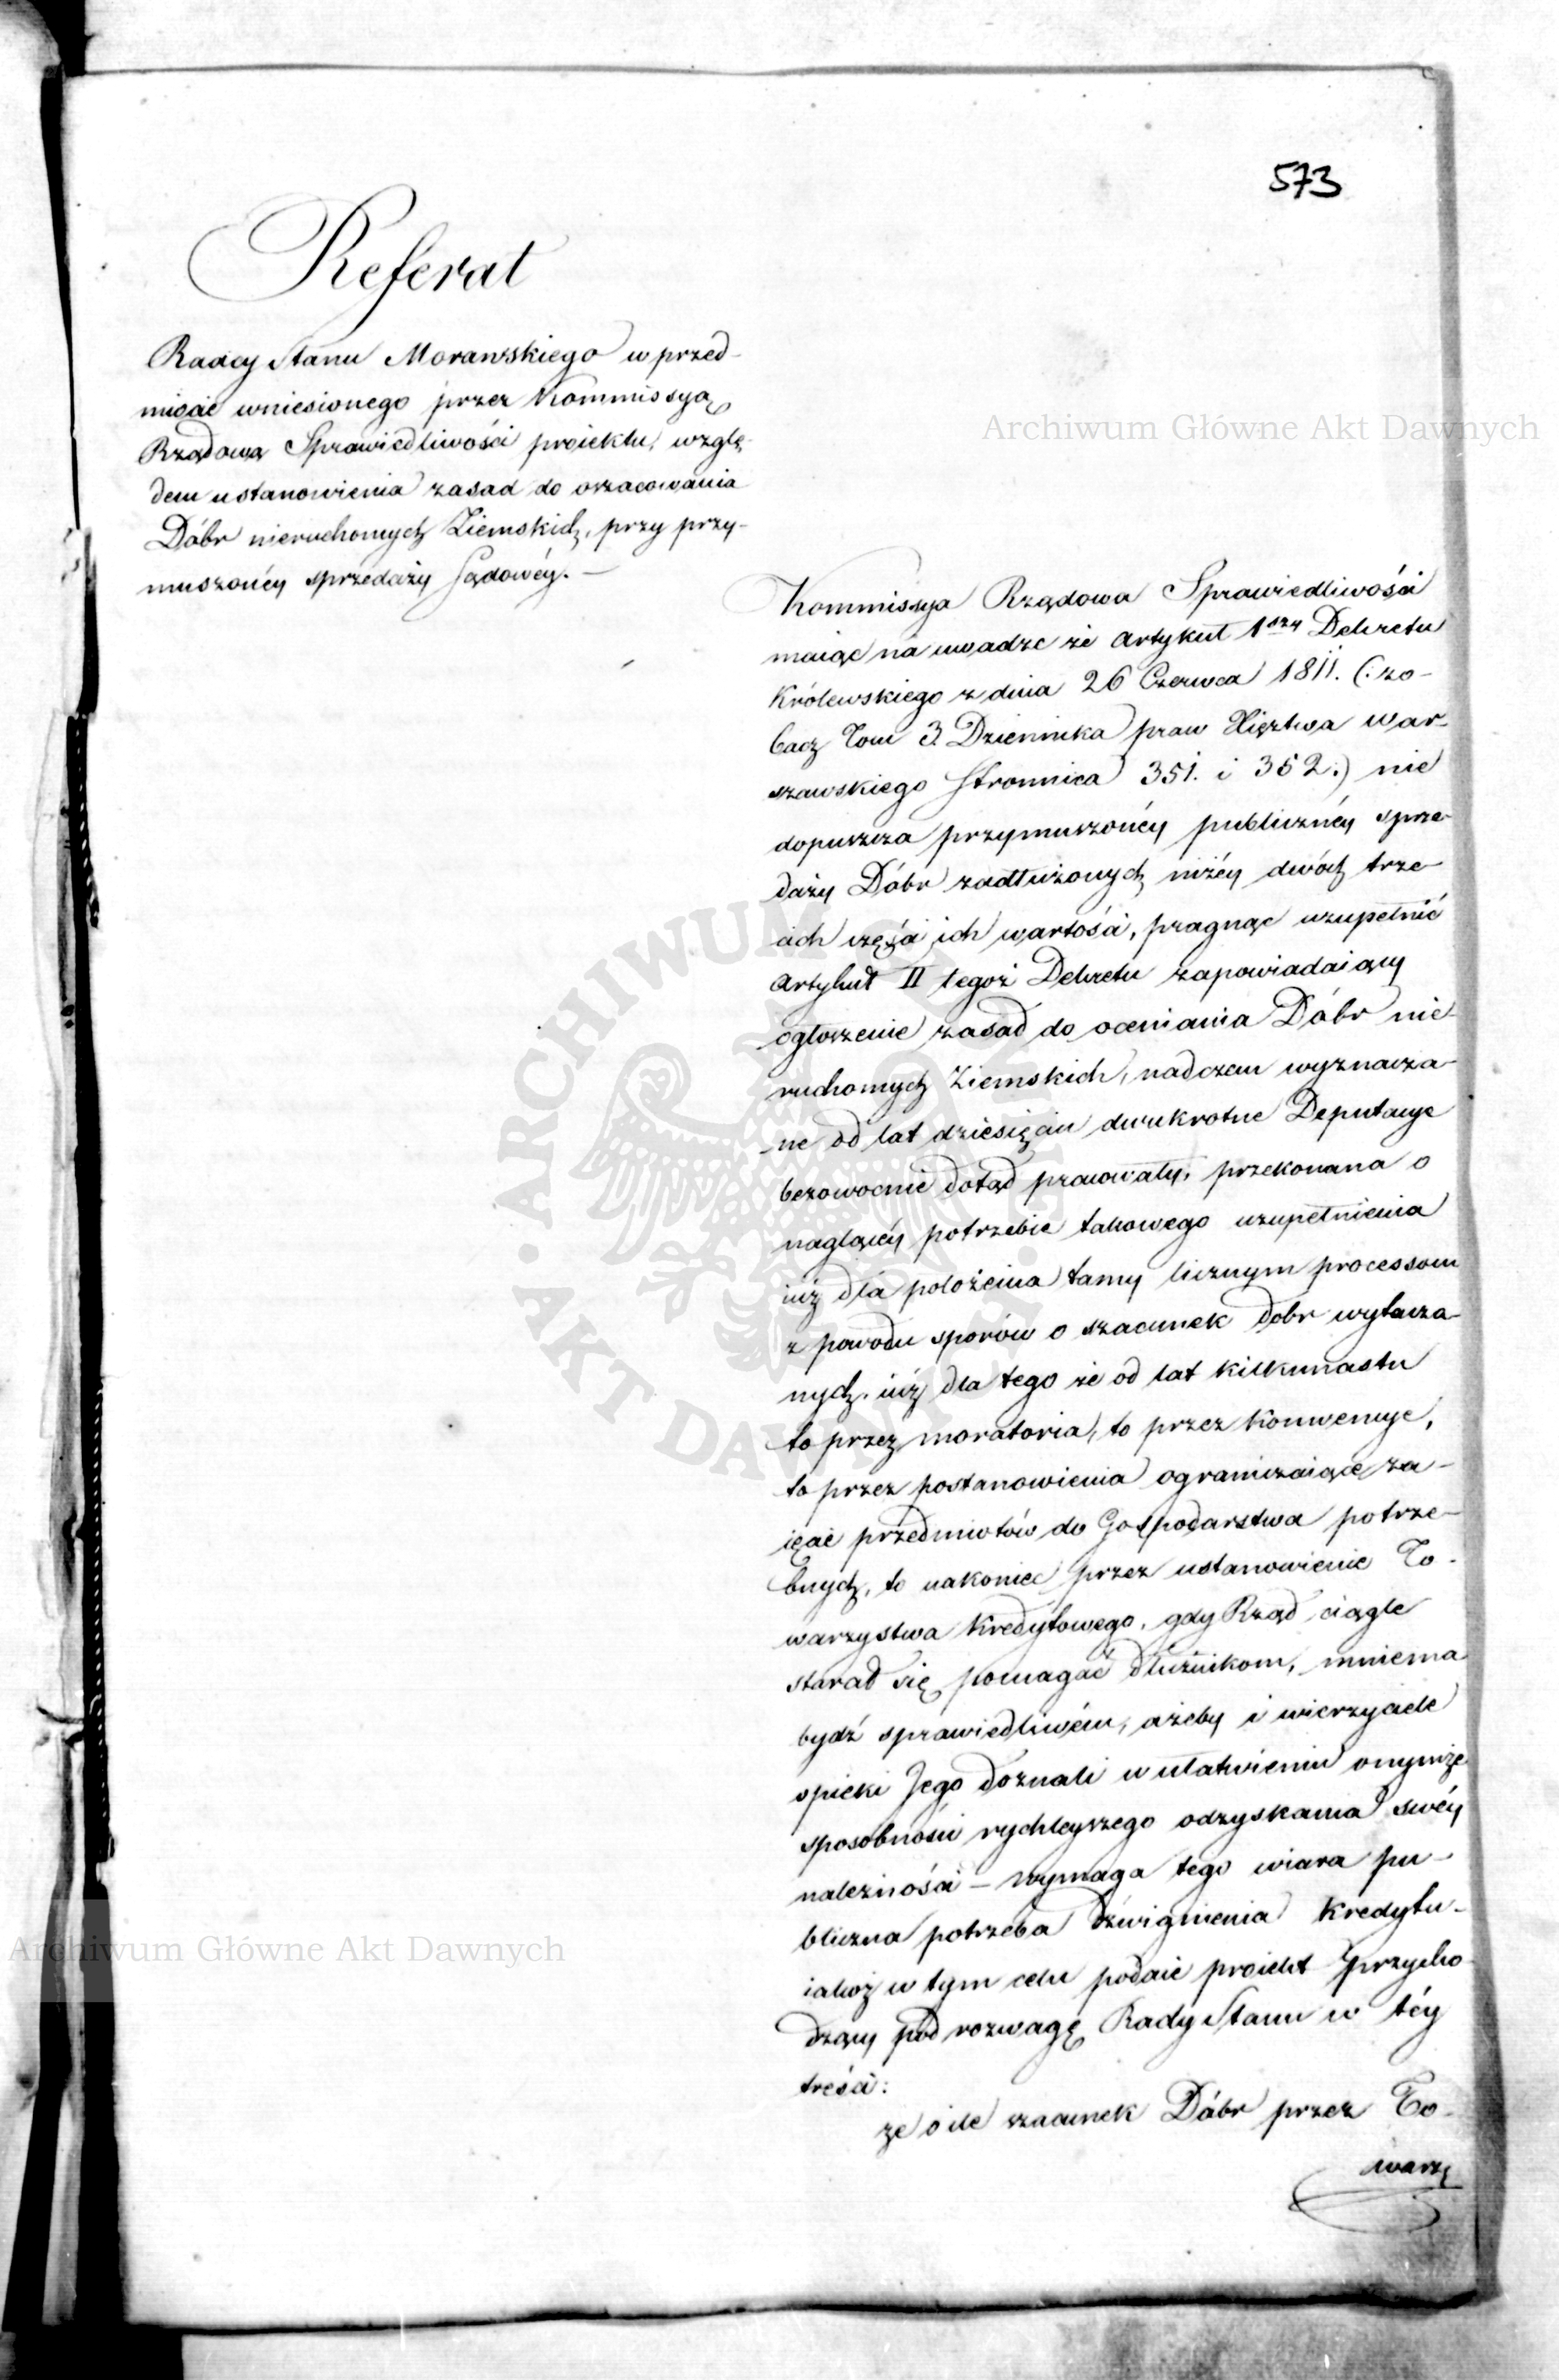 573
Referat
Radcy Stanu Morawskiego w przed-
miocie wniesionego przez Kommissyą
Rządową Sprawiedliwości proiektu, wzglę-
dem ustanowienia zasad do oszacowania
Dóbr nieruchomych Ziemskich, przy przy-
muszonéy sprzedaży Sądowéy. —
Kommissya Rządowa Sprawiedliwości
maiąc na uwadze że artykuł 1szy Dekretu
Królewskiego z dnia 26 Czerwca 1811. (: zo-
bacz Tom 3. Dziennika praw Xięztwa War-
szawskiego Stronnica 351. i 352 :) nie
dopuszcza przymuszonéy publicznéy sprze-
daży Dóbr zadłużonych niżéy dwóch trze-
cich części ich wartości, pragnąc uzupełnić
artykuł II tegoż Dekretu zapowiadaiący
ogłoszenie zasad do oceniania Dóbr nie-
ruchomych Ziemskich, nad czem wyznacza-
ne od lat dziesięciu dwukrotne Deputacye
bezowocnie dotąd pracowały, przekonana o
naglącéy potrzebie takowego uzupełnienia
iuż dla położenia tamy licznym processom
z powodu sporów o szacunek dobr wytacza-
nych, iuż dla tego że od lat kilkunastu
to przez moratoria, to przez Konwencye,
to przez postanowienia ograniczaiące za-
ięcie przedmiotów do Gospodarstwa potrze-
bnych, to nakoniec przez ustanowienie To-
warzystwa Kredytowego, gdy Rząd ciągle
starał się pomagać dłużnikom, mniema
bydź sprawiedliwém, ażeby i wierzyciele
opieki Jego doznali w ułatwieniu onymże
sposobności rychleyszego odzyskania swéy
należności – wymaga tego wiara pu-
bliczna potrzeba dźwignienia Kredytu –
iakoż w tym celu podaie proiekt przycho-
dzący pod rozwagę Rady Stanu w téy
treści:
że o ile szacunek Dóbr przez To-
warzy
Archiwum Główne Akt Dawnych
Archiwum Główne Akt Dawnych